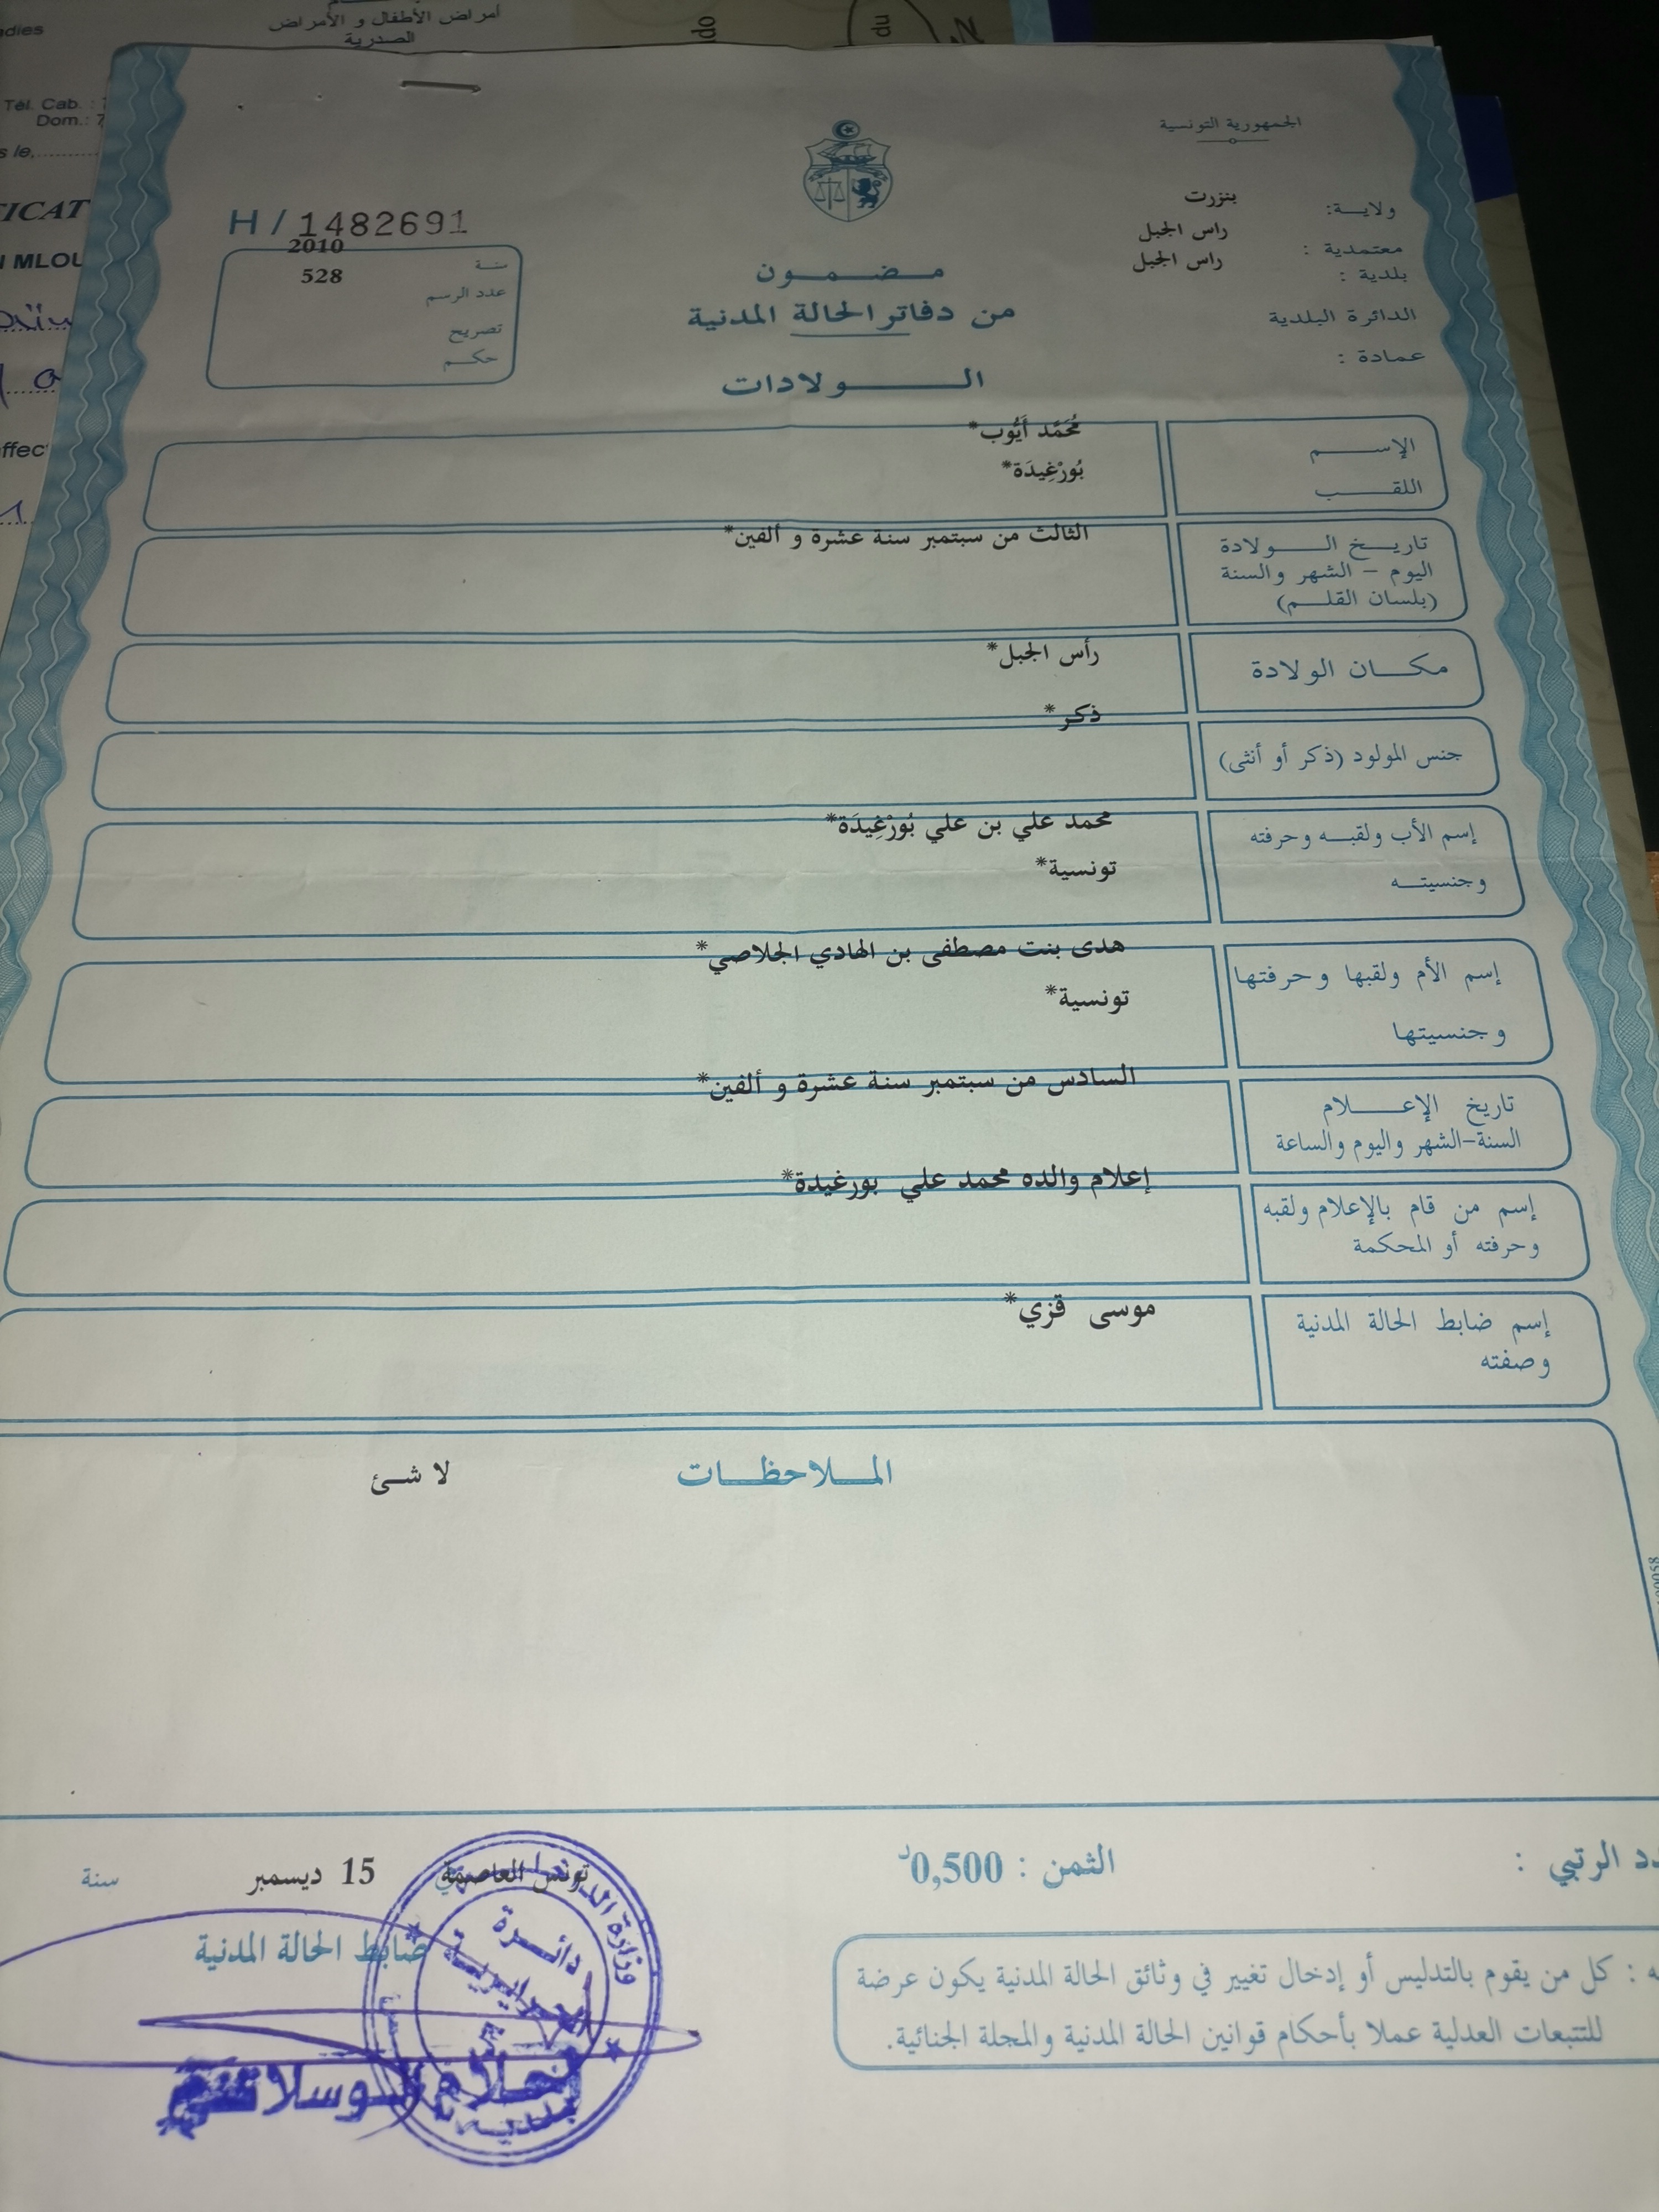 أمراض الأطفال و الأمراض
الصدرية
do
du
Tél. Cab. :
Dom.: 7
s le,
ICAT
MLOU
ffec
الجمهورية التونسية
ولايـــة: بنزرت
معتمدية : راس الجبل
بلدية : راس الجبل
الدائرة البلدية
عمادة :
H / 1482691
سنة 2010
عدد الرسم 528
تصريح
حكم
مضمون
من دفاتر الحالة المدنية
الـولادات
الإسم مُحَمَّد أَيُّوب*
اللقب بُورْغِيدَة*
تاريخ الولادة الثالث من سبتمبر سنة عشرة و ألفين*
اليوم - الشهر والسنة
(بلسان القلم)
مكان الولادة رأس الجبل*
جنس المولود (ذكر أو أنثى) ذكر*
إسم الأب ولقبه وحرفته محمد علي بن علي بُورْغِيدَة*
وجنسيته تونسية*
إسم الأم ولقبها وحرفتها هدى بنت مصطفى بن الهادي الجلاصي*
وجنسيتها تونسية*
تاريخ الإعلام السادس من سبتمبر سنة عشرة و ألفين*
السنة-الشهر واليوم والساعة
إسم من قام بالإعلام ولقبه إعلام والده محمد علي بورغيدة*
وحرفته أو المحكمة
إسم ضابط الحالة المدنية موسى قزي*
وصفته
الملاحظات لا شئ
دد الرتبي : الثمن : 0,500د
تونس العاصمة 15 ديسمبر سنة
ضابط الحالة المدنية
ه : كل من يقوم بالتدليس أو إدخال تغيير في وثائق الحالة المدنية يكون عرضة
للتتبعات العدلية عملا بأحكام قوانين الحالة المدنية والمجلة الجنائية.
وزارة
دائرة
بلدية